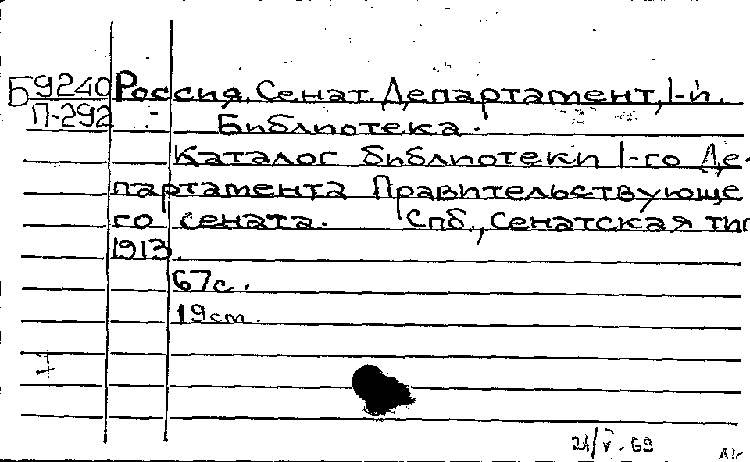 Б 9240 Россия. Сенат. Департамент, 1-й.
П-292 Библиотека.
Каталог библиотеки 1-го Де-
партамента Правительствующе
го сената. Спб., Сенатская тип
1913.
67с.
19см.
21/V.69